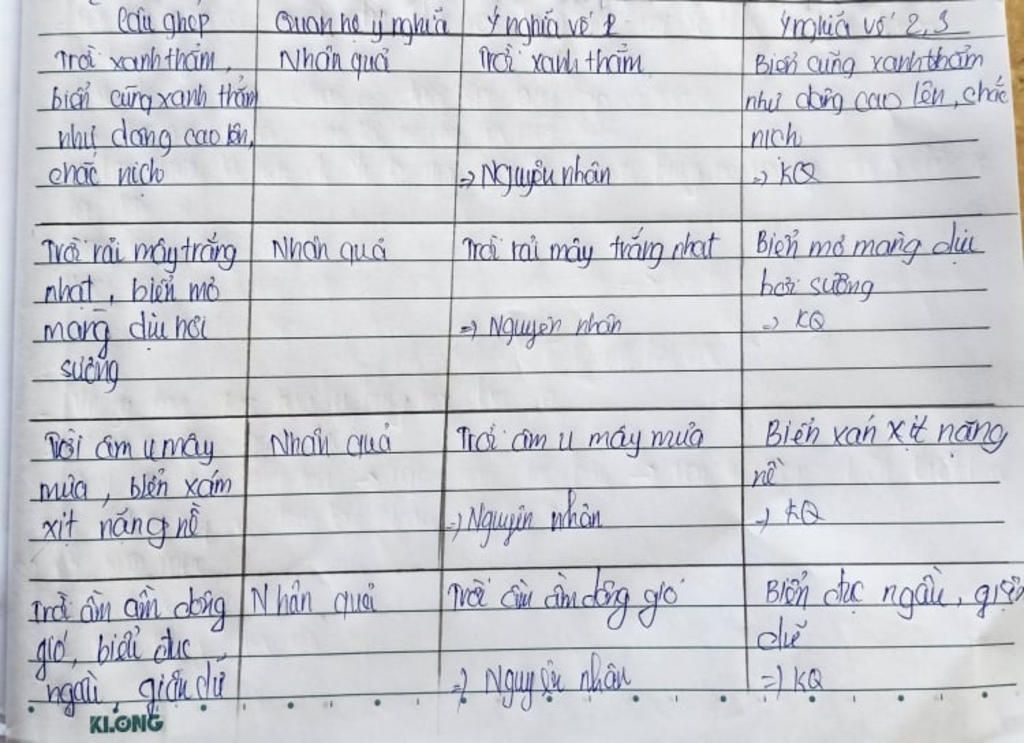 Câu ghép
Quan hệ ý nghĩa
Ý nghĩa vế 1
Ý nghĩa vế 2,3
Trời xanh thẳm,
biển cũng xanh thẳm
như dâng cao lên,
chắc nịch
Nhân quả
Trời xanh thẳm
=> Nguyên nhân
Biển cũng xanh thẳm
như dâng cao lên, chắc
nịch
=> KQ
Trời rải mây trắng
nhạt, biển mơ
màng dịu hơi
sương
Nhân quả
Trời rải mây trắng nhạt
=> Nguyên nhân
Biển mơ màng dịu
hơi sương
=> KQ
Trời âm u mây
mưa, biển xám
xịt nặng nề
Nhân quả
Trời âm u mây mưa
=> Nguyên nhân
Biển xám xịt nặng
nề
=> KQ
Trời ầm ầm dông
gió, biển đục
ngầu, giận dữ
Nhân quả
Trời ầm ầm dông gió
=> Nguyên nhân
Biển đục ngầu, giận
dữ
=> KQ
KLONG